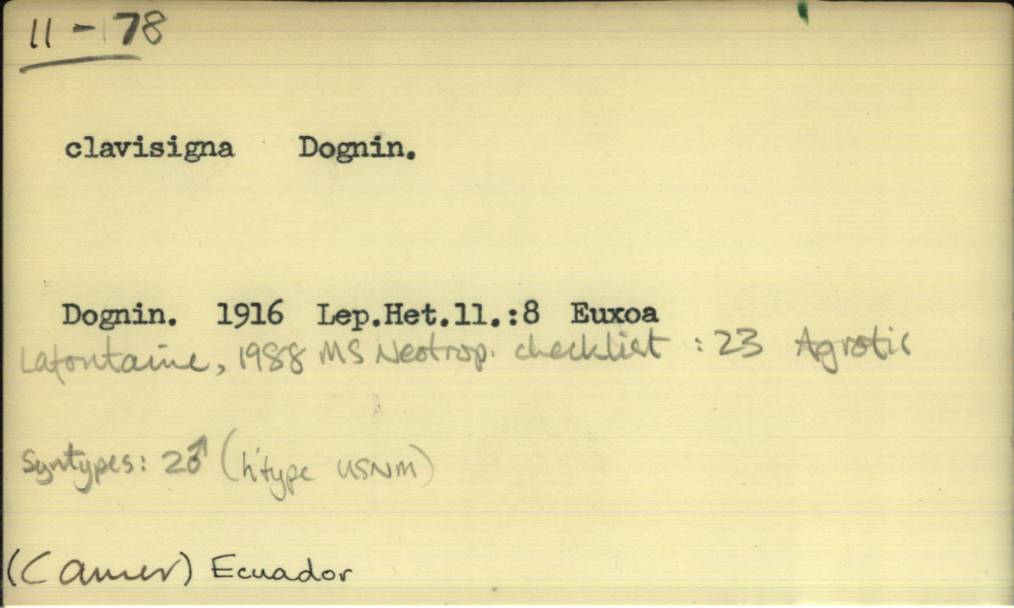 11-178
clavisigna Dognin.
Dognin. 1916 Lep.Het.11.:8 Euxoa
Lafontaine, 1988 MS Neotrop. checklist : 23 Agrotis
Syntypes: 2♂ (h'type USNM)
(C amer) Ecuador